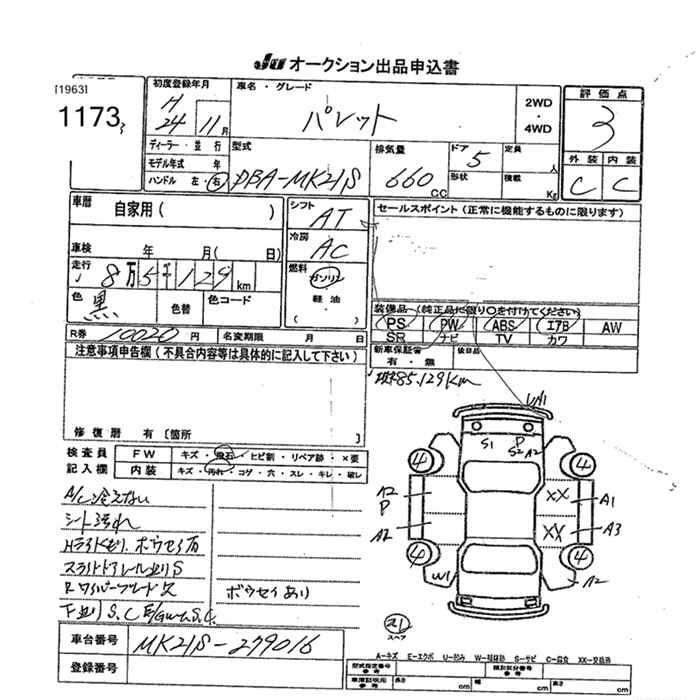 JU オークション出品申込書
[1963]
1173
初度登録年月
H 24 11月
車名・グレード
パレット
2WD
・
4WD
評価点
3
外装 内装
C C
ディーラー・並行
モデル年式 年
ハンドル 左・右
型式
DBA-MK21S
排気量
660 CC
ドア
5
形状
定員
人
積載
Kg
車歴
自家用( )
車検 年 月( 日)
走行
8万5千129km
色
黒
色替
色コード
シフト
AT
冷房
AC
燃料
ガソリン
軽油
( )
セールスポイント(正常に機能するものに限ります)
装備品(純正品に限り○を付けてください)
PS PW ABS エアB AW
SR ナビ TV カワ
新車保証書
有・無
後日品
R券 10020円
名変期限 月 日
注意事項申告欄(不具合内容等は具体的に記入して下さい)
修復歴 有[箇所 ]
85.129Km
検査員
記入欄
FW キズ・飛石・ヒビ割・リペア跡・×要
内装 キズ・汚れ・コゲ・穴・スレ・キレ・破レ
A/C冷えない
シート汚れ
ボウセイ有
ボウセイあり
A1
S1 P
S2 A2
4 4
A2
P
A2
XX A1
XX A3
4 4
W1
A2
スペア
車台番号
MK21S-279016
登録番号
A-キズ E-エクボ U-凹み W-補修跡 S-サビ C-腐食 XX-交換済
型式指定番号
参考
類別区分番号
参考
車庫証明用
参考
長さ cm 幅 cm 高さ cm